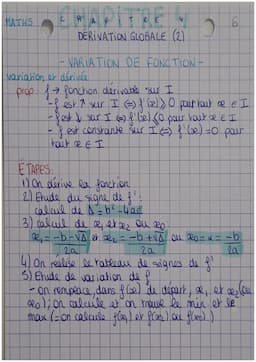 MATHS CHAPITRE 4 6
DÉRIVATION GLOBALE (2)
- VARIATION DE FONCTION -
variation et dérivée
prop. f → fonction dérivable sur I
- f est ↗ sur I ⇔ f'(x) ≥ 0 pour tout x ∈ I
- f est ↓ sur I ⇔ f'(x) ≤ 0 pour tout x ∈ I
- f est constante sur I ⇔ f'(x) = 0 pour
tout x ∈ I
ÉTAPES:
1) On dérive la fonction
2) Étude du signe de f'
calcul de Δ = b² - 4ac
3) calcul de x₁ et x₂ ou x₀
x₁ = -b - √Δ / 2a et x₂ = -b + √Δ / 2a ou x₀ = α = -b / 2a
4) On réalise le tableau de signes de f'
5) Étude de variation de f
- on remplace, dans f(x) de départ, x₁ et x₂ (ou
x₀); on calcule et on trouve le min et le
max (= on calcule f(x₁) et f(x₂) ou f(x₀).)